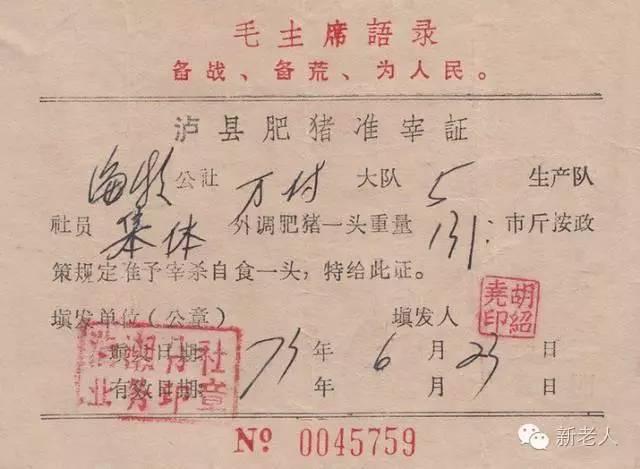 毛主席語录
备战、备荒、为人民。
泸县肥猪准宰証
海潮公社 万村 大队 5 生产队
社员 集体 外调肥猪一头重量 131: 市斤按政
策规定准予宰杀自食一头，特给此证。
填发单位(公章) 填发人
胡紹尭印
填发日期: 75 年 6 月 23 日
有效日期: 年 月 日
№ 0045759
新老人